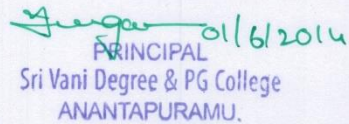 01/6/2014
PRINCIPAL
Sri Vani Degree & PG College
ANANTAPURAMU.